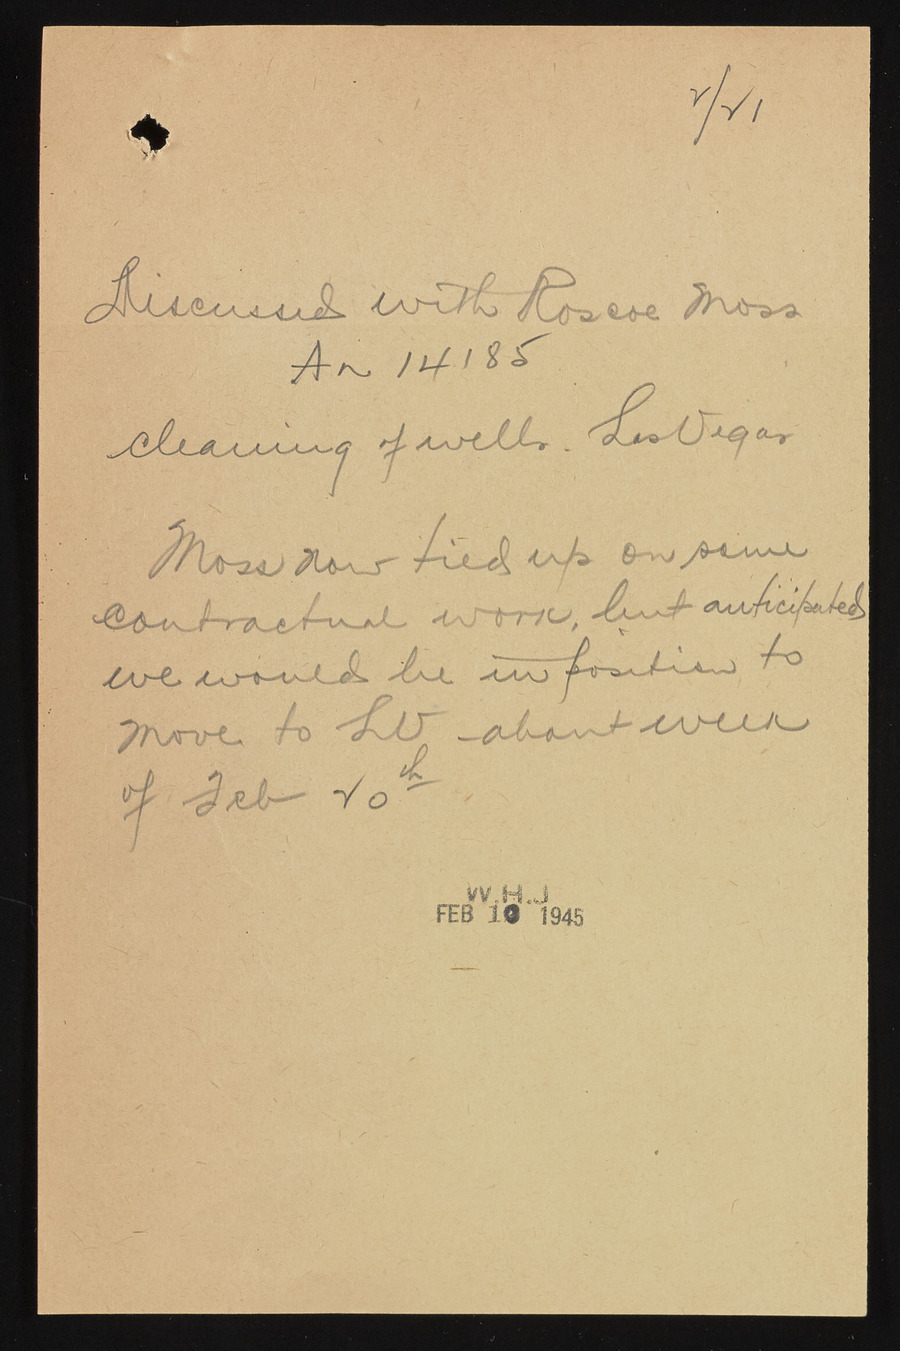 2/21
Discussed with Roscoe Moss
An 14185
cleaning of wells. Las Vegas
Moss now tied up on some
contractual work, but anticipated
we would be in position to
move to LV about week
of Feb 20th
W.H.J
FEB 10 1945